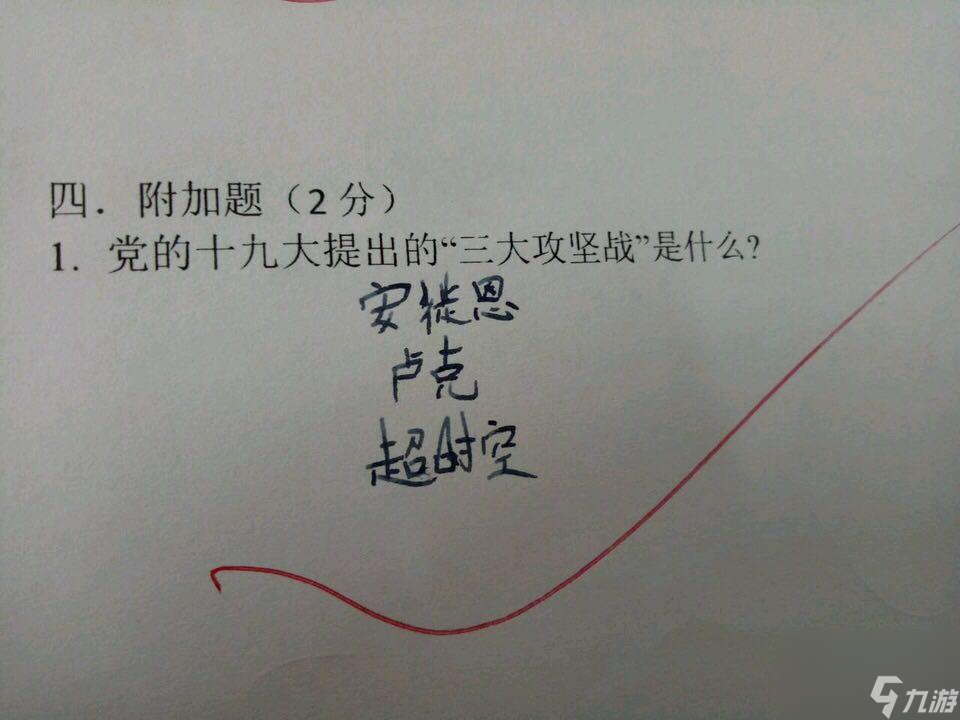 四．附加题（2 分）
1. 党的十九大提出的“三大攻坚战”是什么?
安徒恩
卢克
超时空
九游